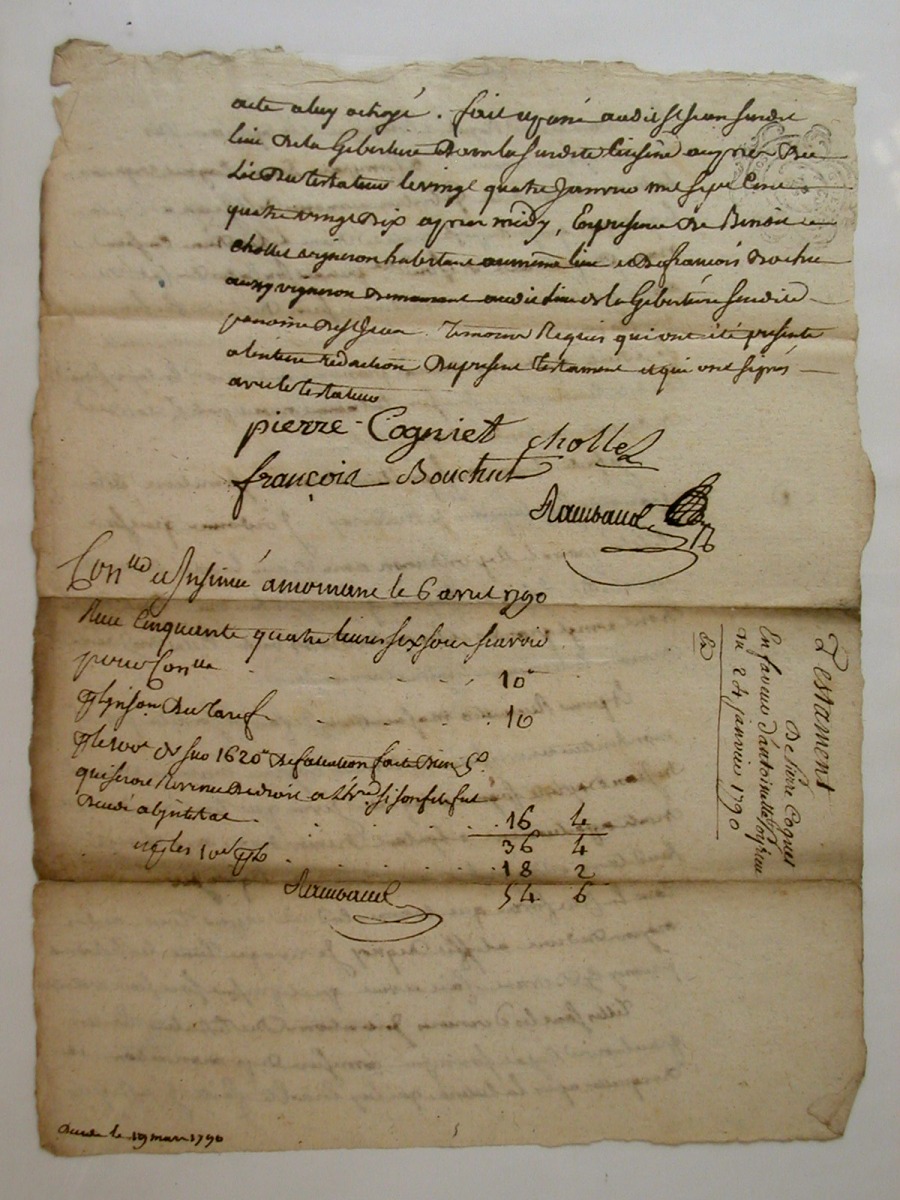 acte a luy octroyé. fait et passé audit St Jean susdit
lieu de la Gibertiere dans la susdite cuisine auprès du
Lit du testateur le vingt quatre Janvier mil sept cent
quatre vingt dix après midy, En presence de Benoit
chollet vigneron habitant au même lieu et de françois Bochu
aussy vigneron demeurant audit Lieu de la Gibertiere susdite
paroisse de St Jean. Temoins Requis qui ont été presents
a l'entiere redaction du present testament et qui ont signés
avec le testateur
pierre Cogniet chollet
françois Bouchut
Rambaud
Con.lle et Insinué a mornant le 6 avril 1790
Reçu Cinquante quatre livres six sous scavoir
pour Con.lle 10
10
1620
16 4
36 4
18 2
Rambaud 54 6
Testament
De Pierre Cogniet
En faveur d'antoinette
du 24 janvier 1790
le 19 mars 1790